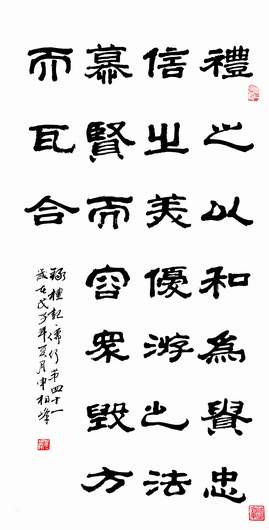 禮之以和為貴忠
信之美優游之法
慕賢而容眾毀方
而瓦合
録禮記儒行第四十一
歲在戊子年夏月申相峰